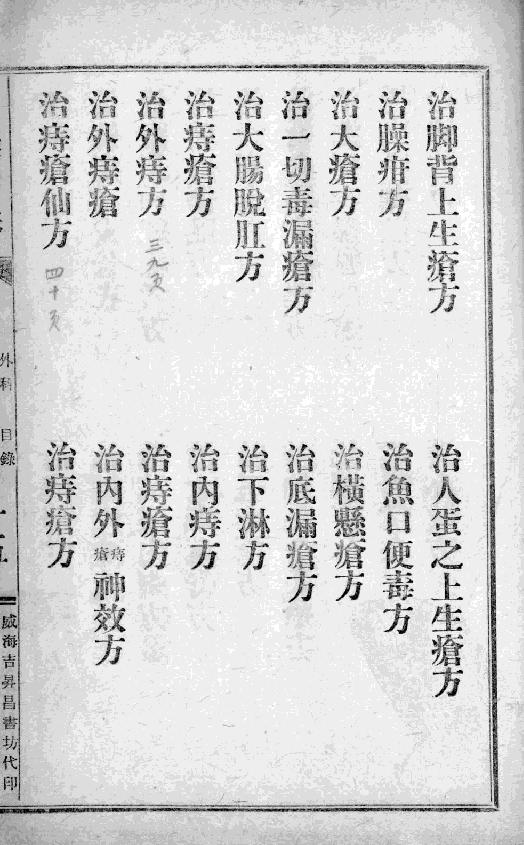 治脚背上生瘡方
治人蛋之上生瘡方
治臊疳方
治魚口便毒方
治大瘡方
治橫懸瘡方
治一切毒漏瘡方
治底漏瘡方
治大腸脫肛方
治下淋方
治痔瘡方
治內痔方
治外痔方
三九页
治痔瘡方
治外痔瘡
治內外痔瘡神效方
治痔瘡仙方
四十页
治痔瘡方
外科 目錄
威海吉昇昌書坊代印